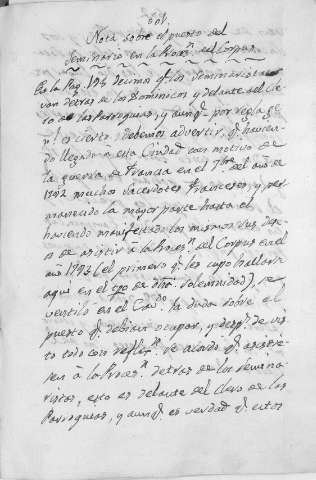 601.
Nota sobre el puesto del
Seminario en la Proces.n del Corpus.
En la Pag. 194 decimos q.e los Seminaristas
van detras de los Dominicos y delante del Cle-
ro de las Parroquias, y aunq.e por regla ge-
n.l es cierto, debemos advertir q.e havien-
do llegado à esta Ciudad con motivo de
la guerra de Francia en el 7bre. del año de
1792 muchos Sacerdotes Franceses, y per-
maneciendo la mayor parte hasta el
haviendo manifestado los mismos sus dese-
os de asistir à la Proces.n del Corpus en el
año 1793 (el primero q.e les cupo hallarse
aqui en el tpo de dha. Solemnidad), se
ventiló en el Cav.do la duda sobre el
puesto q.e debian ocupar, y desp.s de vis-
to todo con reflex.n se acordó q.e asistie-
sen à la Proces.n detras de los Semina-
ristas, esto es delante del Clero de las
Parroquias, y aunq.e es verdad q.e estos